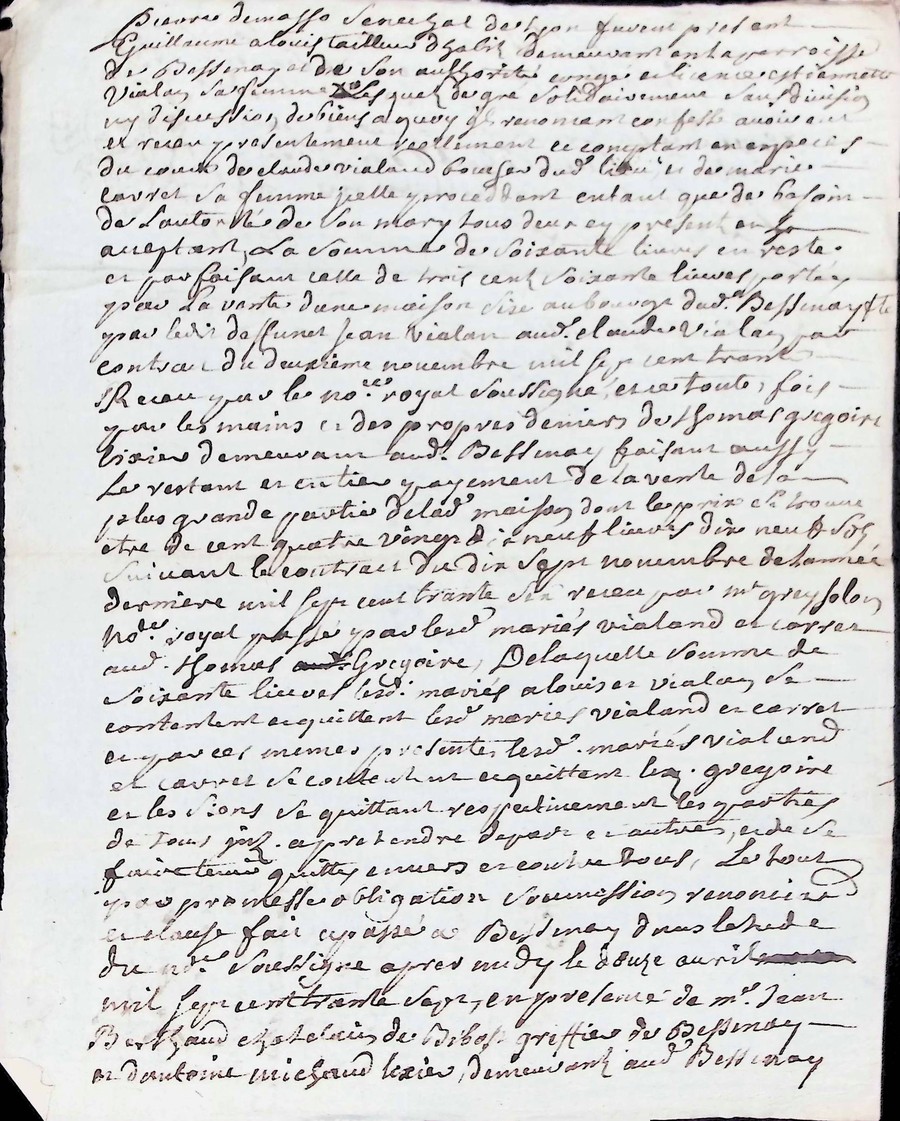 Pierre demasso Senechal de Lyon furent present
Guillaume alouis tailleur d'habit demeurant en la parroisse
de Bessenay et de son authorité congé et licence estiennette
Vialan sa femme Lesquels de gré solidairement sans division
ny discussion de biens a quoy ils renoncent confesse avoir eu
et receu presentement reellement et comptant en especes
du cours de claude vialand bourgeois dud. lieu et de marie
carret sa femme icelle procedant entant que de besoin
de L'autorité de son mary tous deux icy present en
acceptant, La somme de soixante livres en reste
et parfaisant celle de trois cent soixante livres portée
par La vente d'une maison size au bourg dud. Bessenay
par ledit deffunct Jean vialan aud. claude vialan par
contract du deuxieme novembre mil sept cent trante
Receu par le no.re royal soussigné, et ce toute, fois
par les mains et des propres deniers de thomas gregoire
tixier demeurant aud. Bessenay faisant aussy
Le restant et entier payement de la vente de la
plus grande partie de lad. maison dont le prix se trouve
etre de cent quatre vingt neuf livres dix neuf sols
suivant le contract du dix sept novembre de l'année
derniere mil sept cent trante six receu par m.e greysolon
No.re royal passé par lesd. mariés vialand et carret
aud. thomas Gregoire, De laquelle somme de
soixante livres lesd. mariés alouis et vialan se
contentent et quittent lesd. mariés vialand et carret
et par ces memes presentes lesd. mariés vialand
et carret se contentent et quittent led. gregoire
et les sions se quittant respectivement les parties
de tous a pretendre de part et autres, et de se
faire tenir quittes envers et contre tous, Le tout
par promesse obligation soumission, renonciation
et clause fait et passé a Bessenay dans letude
du no.re soussigné apres midy le douze avril
mil sept cent trante sept, en presence de m.e Jean
Berthaud chatelain de Bibost greffier de Bessenay
et d'antoine michaud tixier, demeurant aud. Bessenay